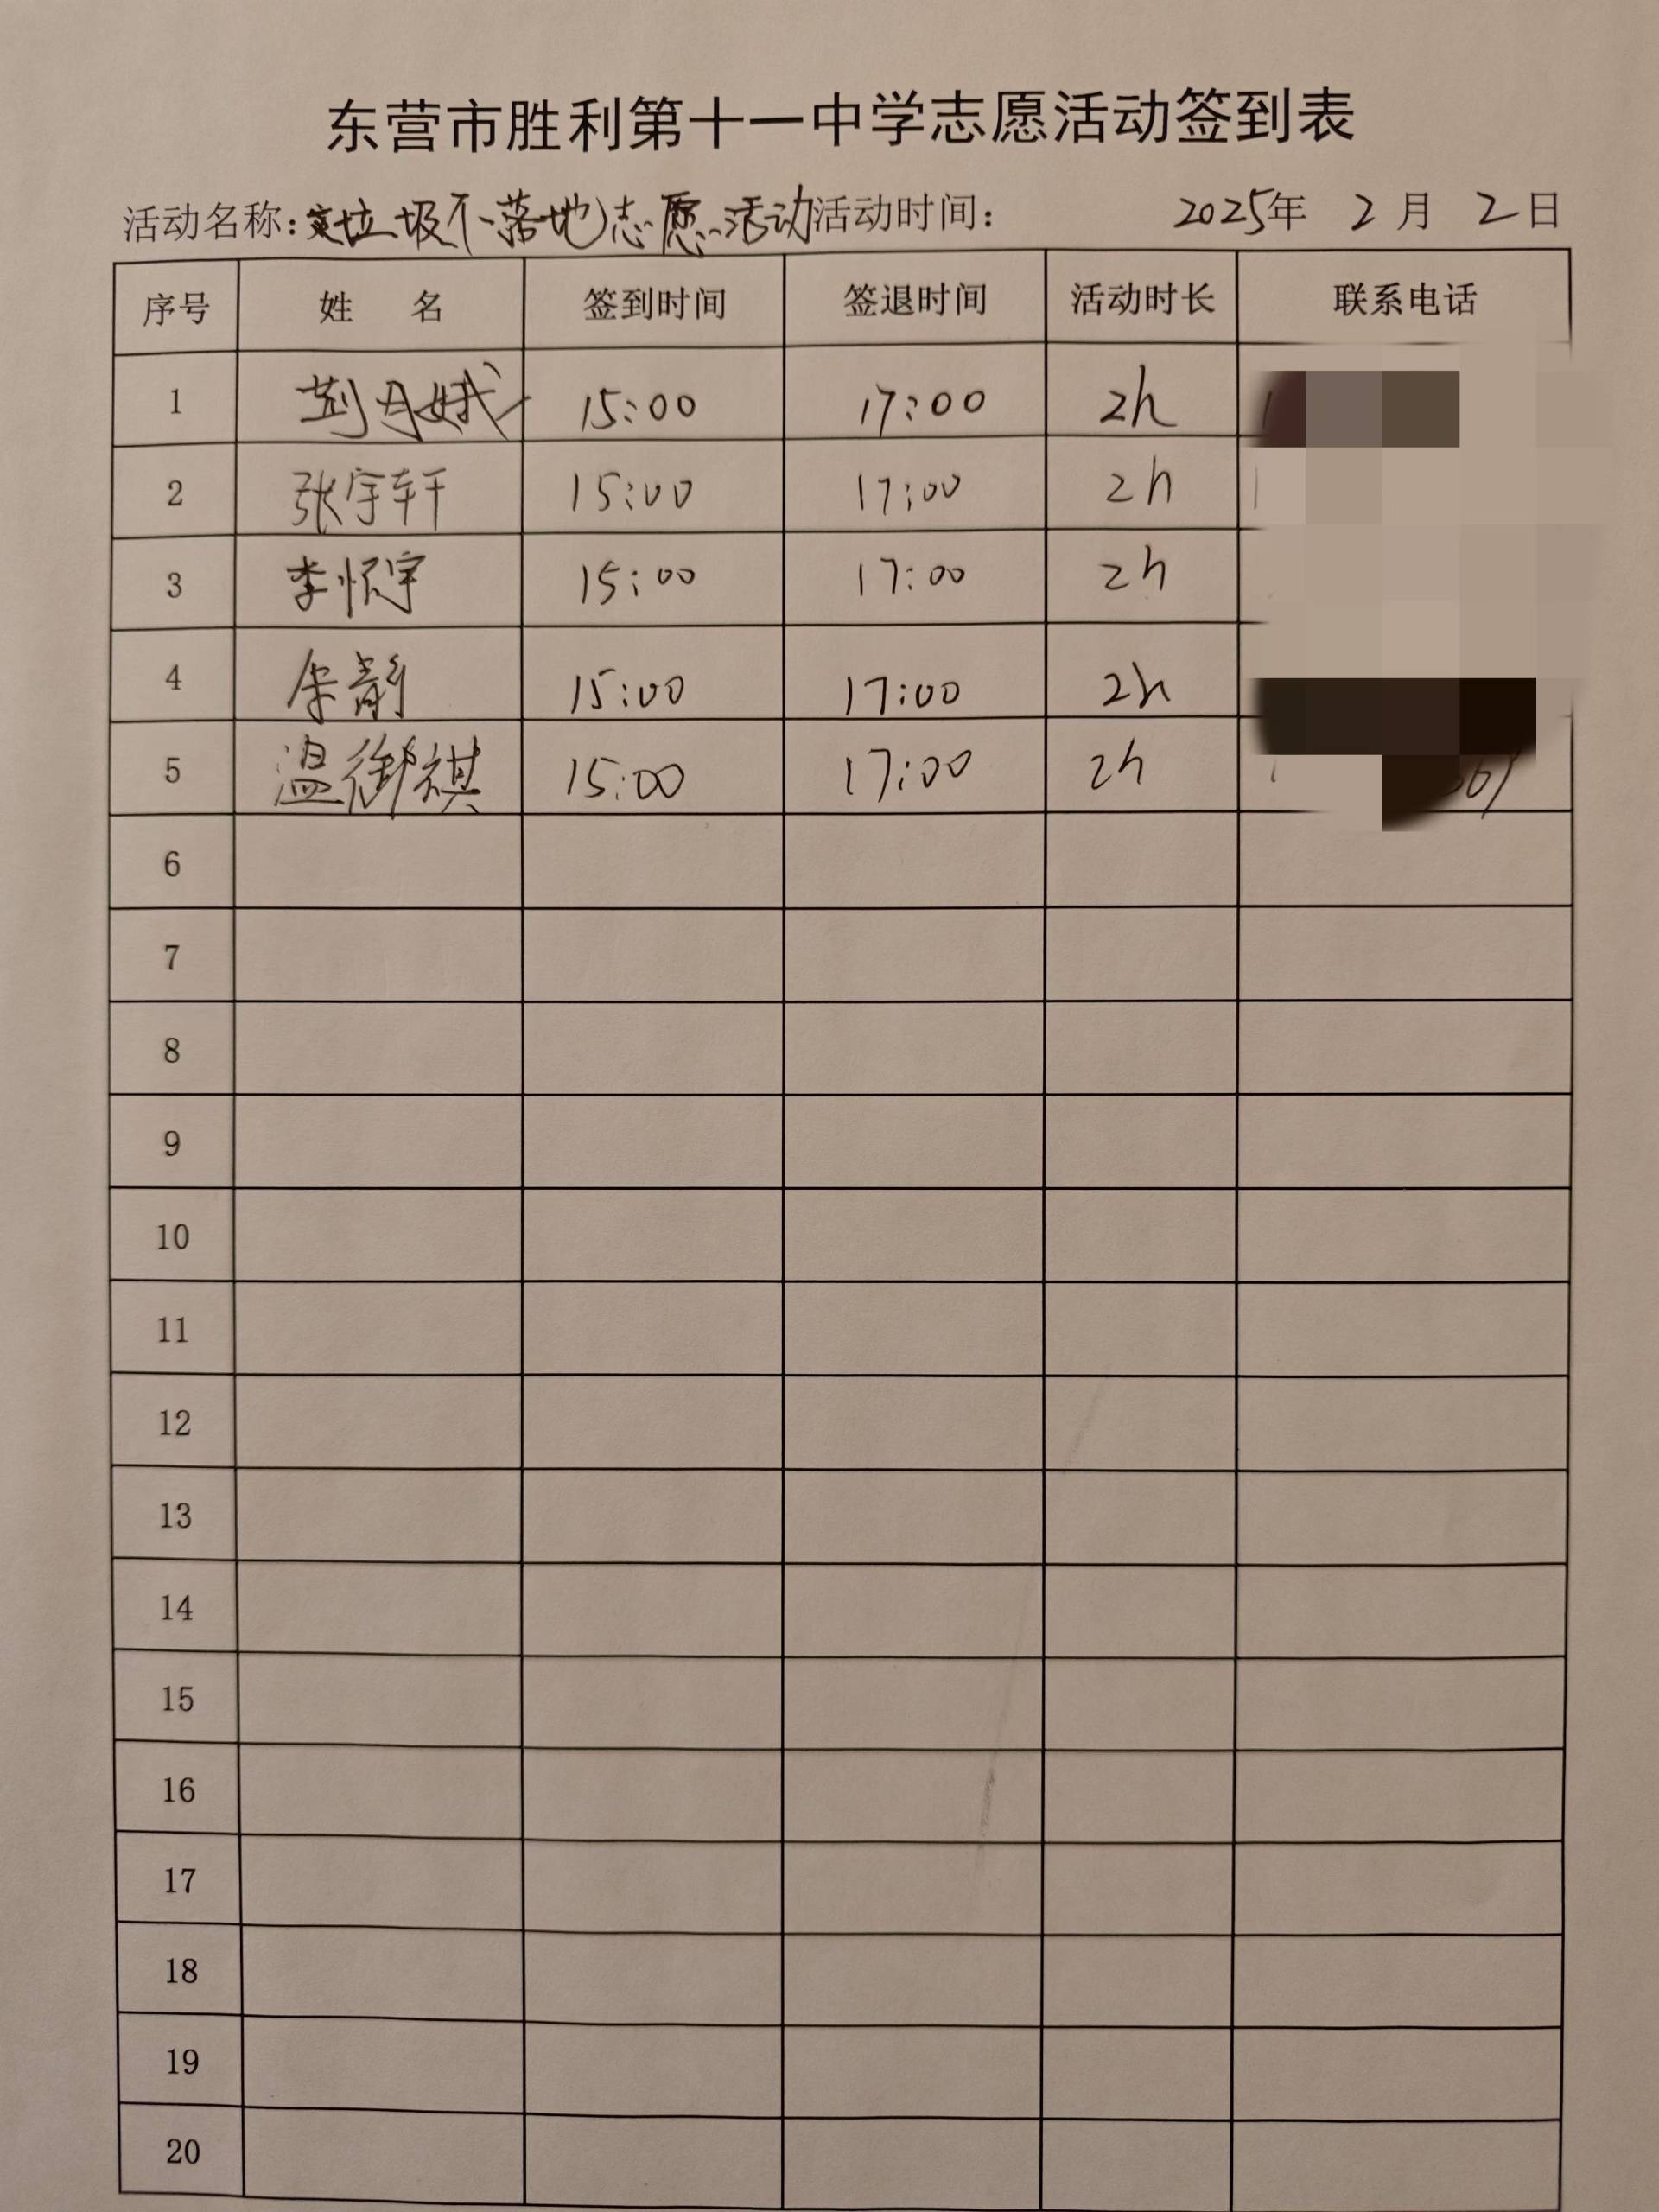 东营市胜利第十一中学志愿活动签到表
活动名称：垃圾不落地志愿活动 活动时间： 2025年 2月 2日
序号 姓 名 签到时间 签退时间 活动时长 联系电话
1 荆月娥 15:00 17:00 2h
2 张宇轩 15:00 17:00 2h
3 李怀宇 15:00 17:00 2h
4 静 15:00 17:00 2h
5 温御祺 15:00 17:00 2h
6
7
8
9
10
11
12
13
14
15
16
17
18
19
20